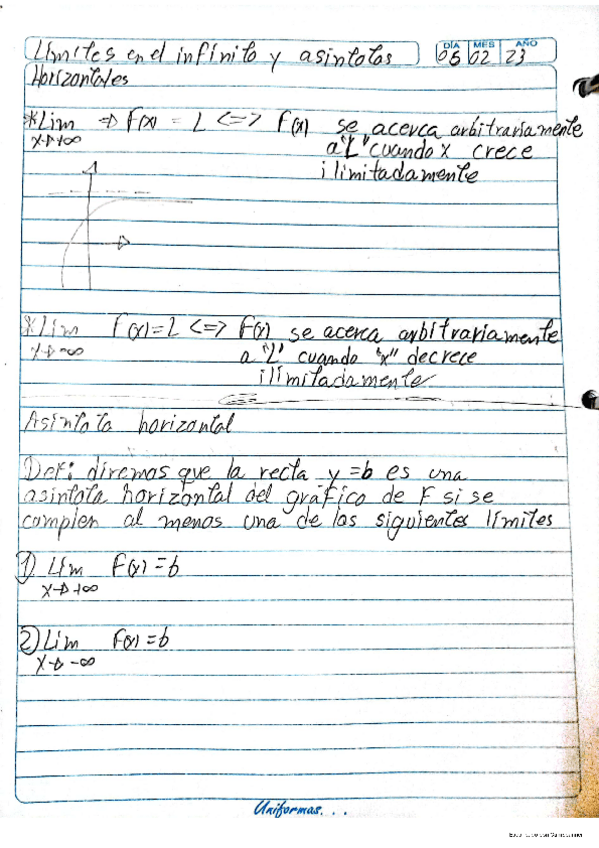 Límites en el infinito y asintotas
DÍA MES AÑO
05 02 23
Horizontales
*Lim => F(x) = L <=> F(x) se acerca arbitrariamente
x→+∞ a "L" cuando x crece
ilimitadamente
*Lim F(x)=L <=> F(x) se acerca arbitrariamente
x→-∞ a "L" cuando "x" decrece
ilimitadamente
Asintota horizontal
Def: diremos que la recta y=b es una
asintota horizontal del gráfico de F si se
complen al menos una de los siguientes límites
1) Lim F(x)=b
x→+∞
2) Lim F(x)=b
x→-∞
Uniformas...